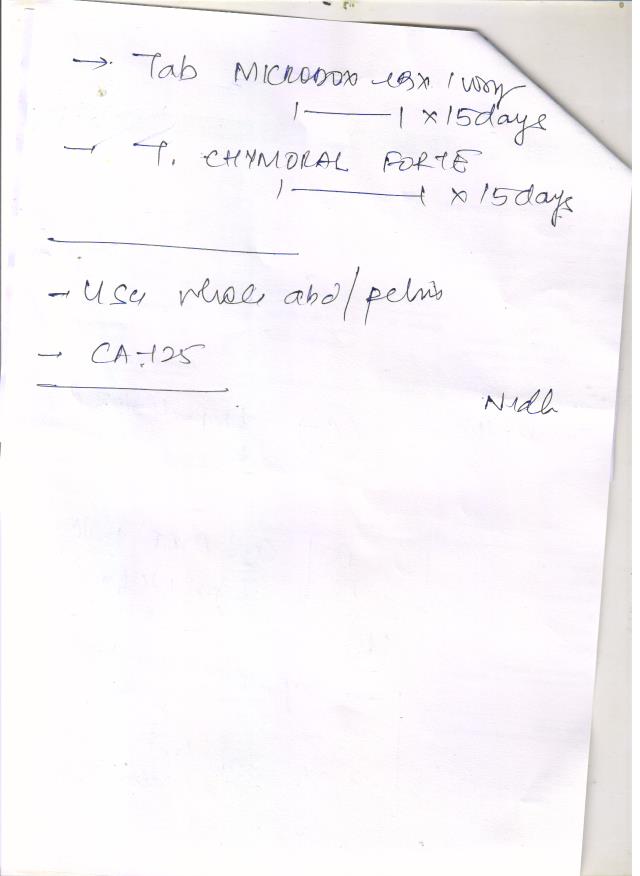 → Tab MICRODOX LBX 1
1——1 x 15 days
– T. CHYMORAL FORTE
1——1 x 15 days
– USG whole abd/pelvis
– CA-125
Nidhi